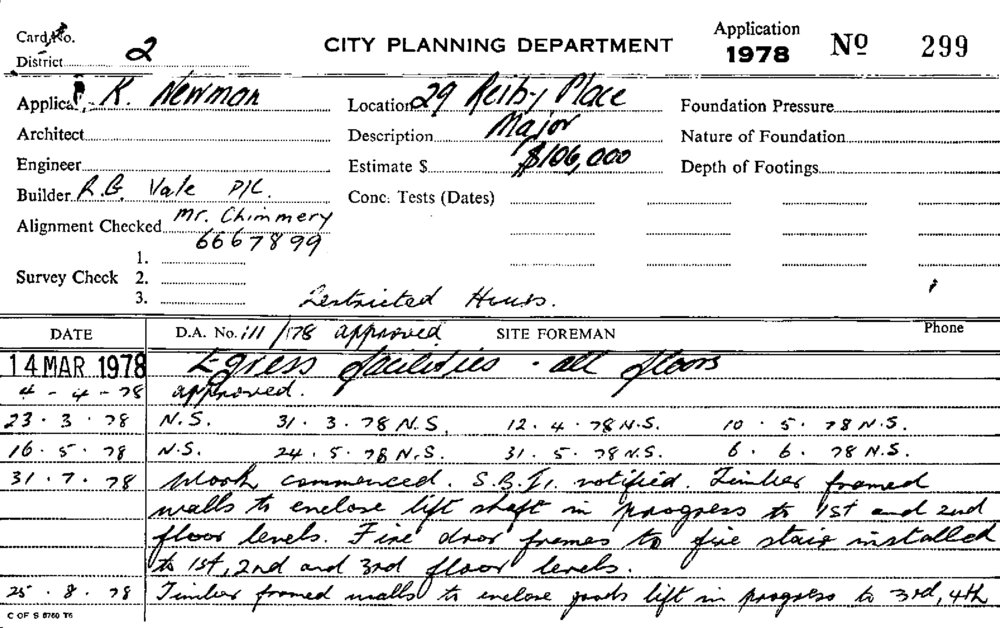 Card No.
District 2
CITY PLANNING DEPARTMENT
Application
1978 No 299
Applicant K. Newman
Location 29 Reiby Place
Foundation Pressure
Architect
Description Major
Nature of Foundation
Engineer
Estimate $ $106,000
Depth of Footings
Builder R.G. Vale P/L.
Conc. Tests (Dates)
Alignment Checked Mr. Chimmery
6667899
1.
Survey Check 2.
3.
Restricted Hours.
DATE D.A. No. 111/78 approved SITE FOREMAN Phone
14 MAR 1978 Egress facilities - all floors
4 - 4 - 78 approved.
23 . 3 . 78 N.S. 31 . 3 . 78 N.S. 12 . 4 . 78 N.S. 10 . 5 . 78 N.S.
16 . 5 . 78 N.S. 24 . 5 . 78 N.S. 31 . 5 . 78 N.S. 6 . 6 . 78 N.S.
31 . 7 . 78 Work commenced. S.B.I. notified. Timber framed
walls to enclose lift shaft in progress to 1st and 2nd
floor levels. Fire door frames to fire stair installed
to 1st, 2nd and 3rd floor levels.
25 . 8 . 78 Timber framed walls to enclose goods lift in progress to 3rd, 4th
C OF S 8760 T6